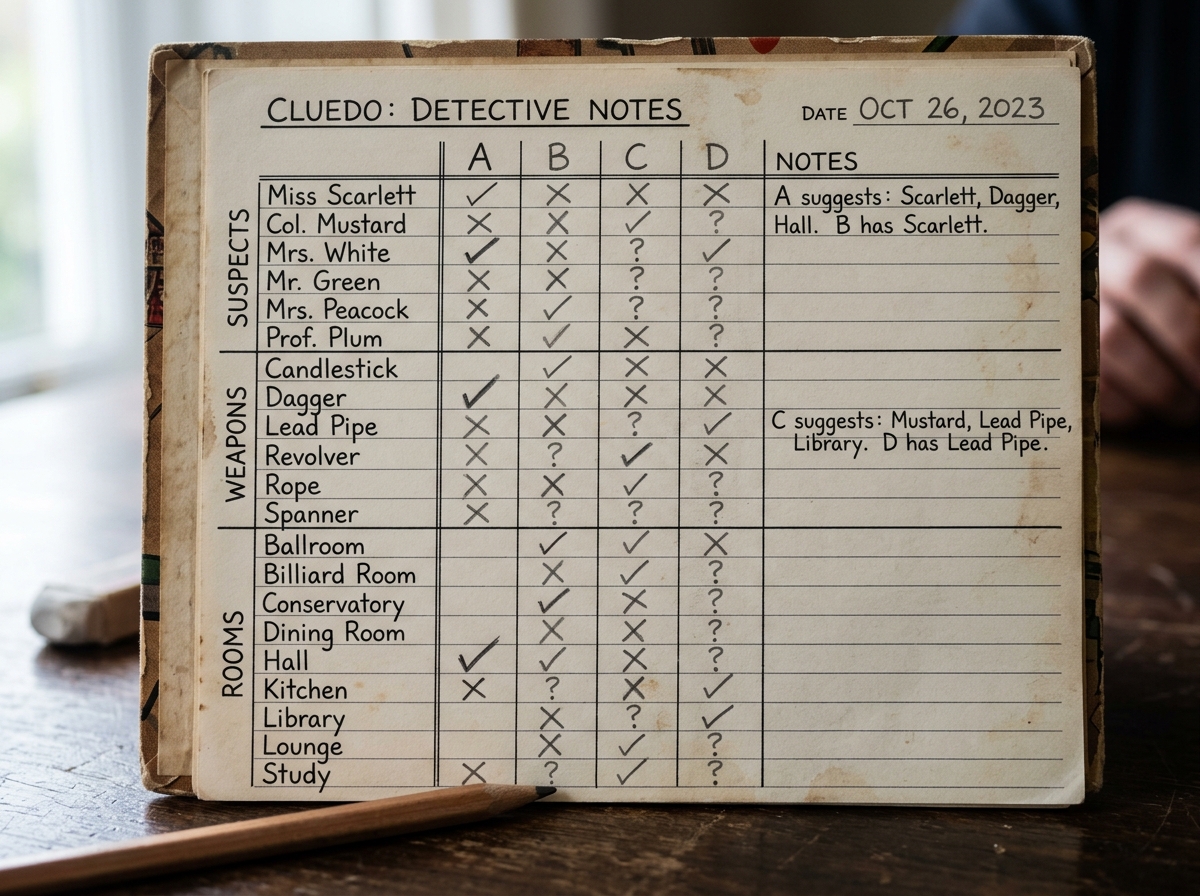 CLUEDO: DETECTIVE NOTES
DATE OCT 26, 2023
A B C D NOTES
SUSPECTS
Miss Scarlett ✓ ✗ ✗ ✗ A suggests: Scarlett, Dagger,
Col. Mustard ✗ ✗ ✓ ? Hall. B has Scarlett.
Mrs. White ✓ ✗ ? ✓
Mr. Green ✗ ✗ ? ?
Mrs. Peacock ✗ ✓ ? ?
Prof. Plum ✗ ✓ ✗ ?
WEAPONS
Candlestick ✓ ✗ ✗
Dagger ✓ ✗ ✗ ✗
Lead Pipe ✗ ✗ ? ✓ C suggests: Mustard, Lead Pipe,
Revolver ✗ ? ✓ ✗ Library. D has Lead Pipe.
Rope ✗ ✗ ✓ ?
Spanner ✗ ? ? ?
ROOMS
Ballroom ✓ ✓ ✗
Billiard Room ✗ ✓ ?
Conservatory ✓ ✗ ?
Dining Room ✗ ✗ ?
Hall ✓ ✓ ✗ ?
Kitchen ✗ ? ✗ ✓
Library ✗ ? ✓
Lounge ✗ ✓ ?
Study ✗ ? ✓ ?